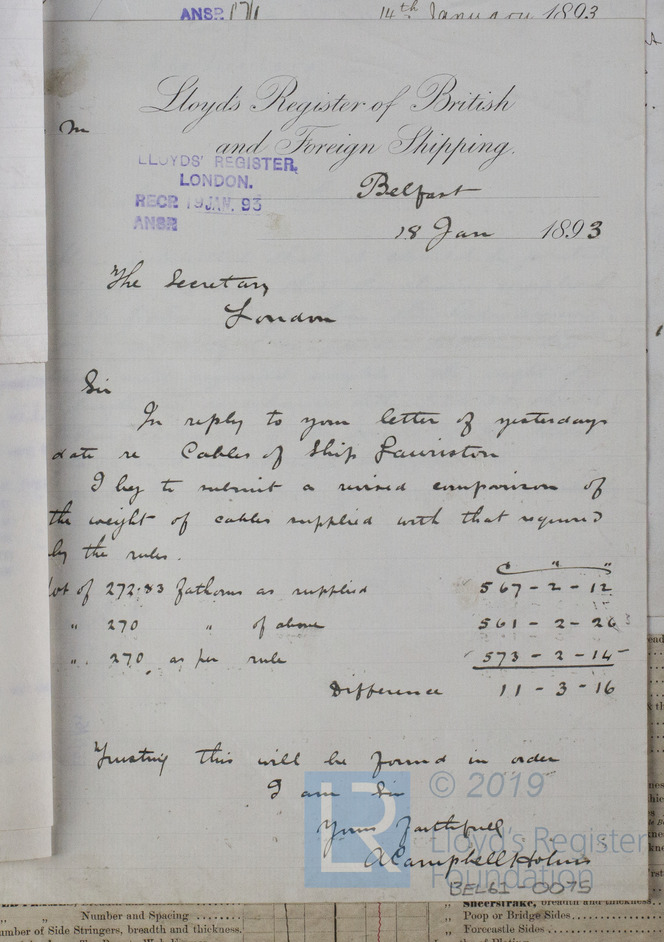 ANSR
14th January 1893
Lloyds Register of British
and Foreign Shipping.
LLOYDS' REGISTER,
LONDON.
RECR 19 JAN. 93
ANSR
Belfast
18 Jan 1893
The Secretary
London
Sir
In reply to your letter of yesterdays
date re Cables of Ship Lauriston
I beg to submit a revised comparison of
the weight of cables supplied with that required
by the rules.
Wt of 272.83 fathoms as supplied 567-2-12
" 270 " of above 561-2-26
" 270 as per rule 573-2-14
Difference 11-3-16
Trusting this will be found in order
I am Sir
Yours faithfully
A Campbell Holms
© 2019
LR
Lloyd's Register
Foundation
BEL61-0075
" " Number and Spacing ........
Number of Side Stringers, breadth and thickness.
Sheerstrake, breadth and thickness
" Poop or Bridge Sides
" Forecastle Sides